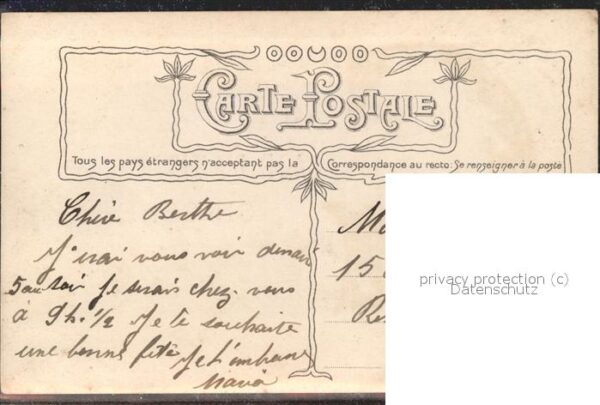 CARTE POSTALE
Tous les pays étrangers n'acceptant pas la Correspondance au recto: Se renseigner à la poste
Chère Berthe
J'irai vous voir demain
5 au soir je serais chez vous
a 9h. 1/2 Je te souhaite
une bonne fête Je t'embrasse
15
privacy protection (c)
Datenschutz